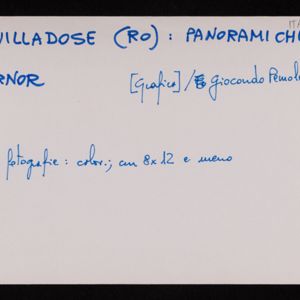 VILLADOSE (RO) : PANORAMICHE
RNOR [Grafica] / Giocondo
fotografie : color.; cm 8x12 e meno